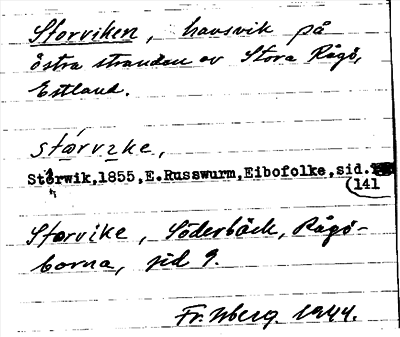 Storviken, havsvik på
östra stranden av Stora Rågö,
Estland.
stórvike,
Storwik,1855,E.Russwurm,Eibofolke,sid.
141
Storvike, Söderbäck, Rågö-
borna, sid 9.
Fr. Wberg. 1944.